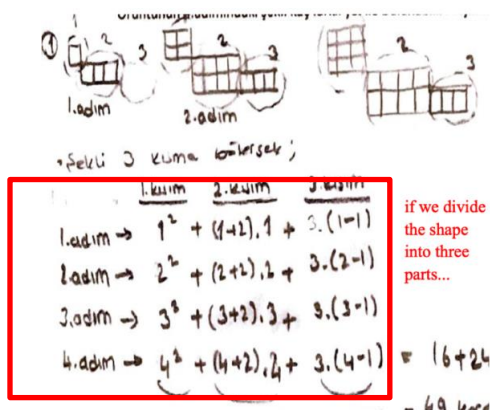 1
① 2 3 2 3 2 3
1.adım 2.adım
• Şekli 3 kısma bölersek ;
1.kısım 2.kısım 3.kısım
1.adım → 1² + (1+2).1 + 3.(1-1)
2.adım → 2² + (2+2).2 + 3.(2-1)
3.adım → 3² + (3+2).3 + 3.(3-1)
4.adım → 4² + (4+2).4 + 3.(4-1) = 16+24
if we divide
the shape
into three
parts...